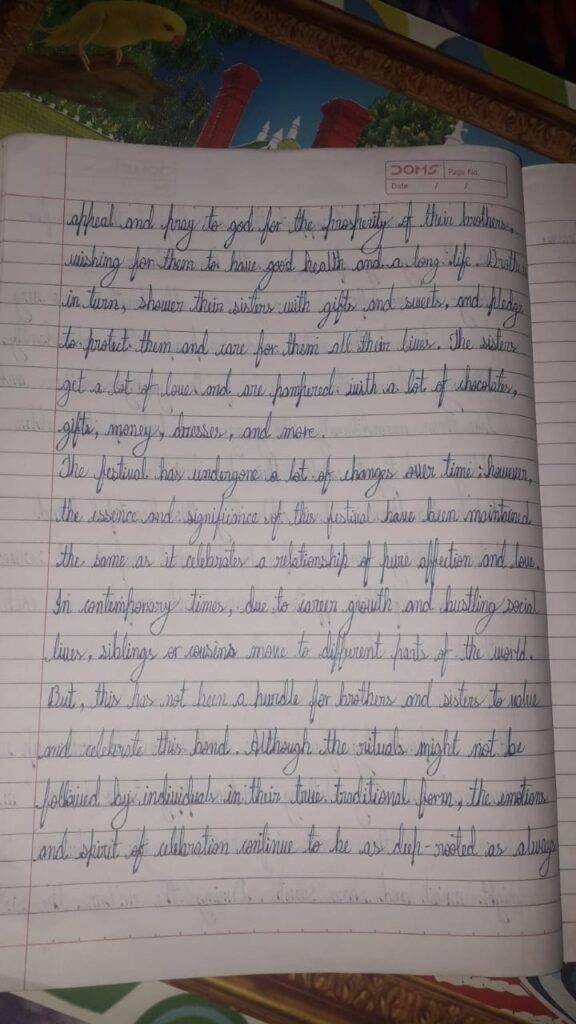 DOMS
Page No.
Date / /
appeal and pray to god for the prosperity of their brothers,
wishing for them to have good health and a long life. Brothers
in turn, shower their sisters with gifts and sweets, and pledge
to protect them and care for them all their lives. The sisters
get a lot of love and are pampered with a lot of chocolates,
gifts, money, dresses, and more.
The festival has undergone a lot of changes over time; however,
the essence and significance of this festival have been maintained
the same as it celebrates a relationship of pure affection and love.
In contemporary times, due to career growth and bustling social
lives, siblings or cousins move to different parts of the world.
But, this has not been a hurdle for brothers and sisters to value
and celebrate this bond. Although the rituals might not be
followed by individuals in their true traditional form, the emotions
and spirit of celebration continue to be as deep-rooted as always